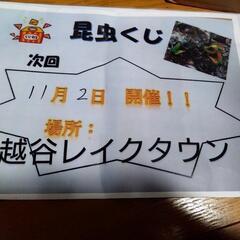 昆虫くじ
次回
11月2日 開催!!
場所:
越谷レイクタウン